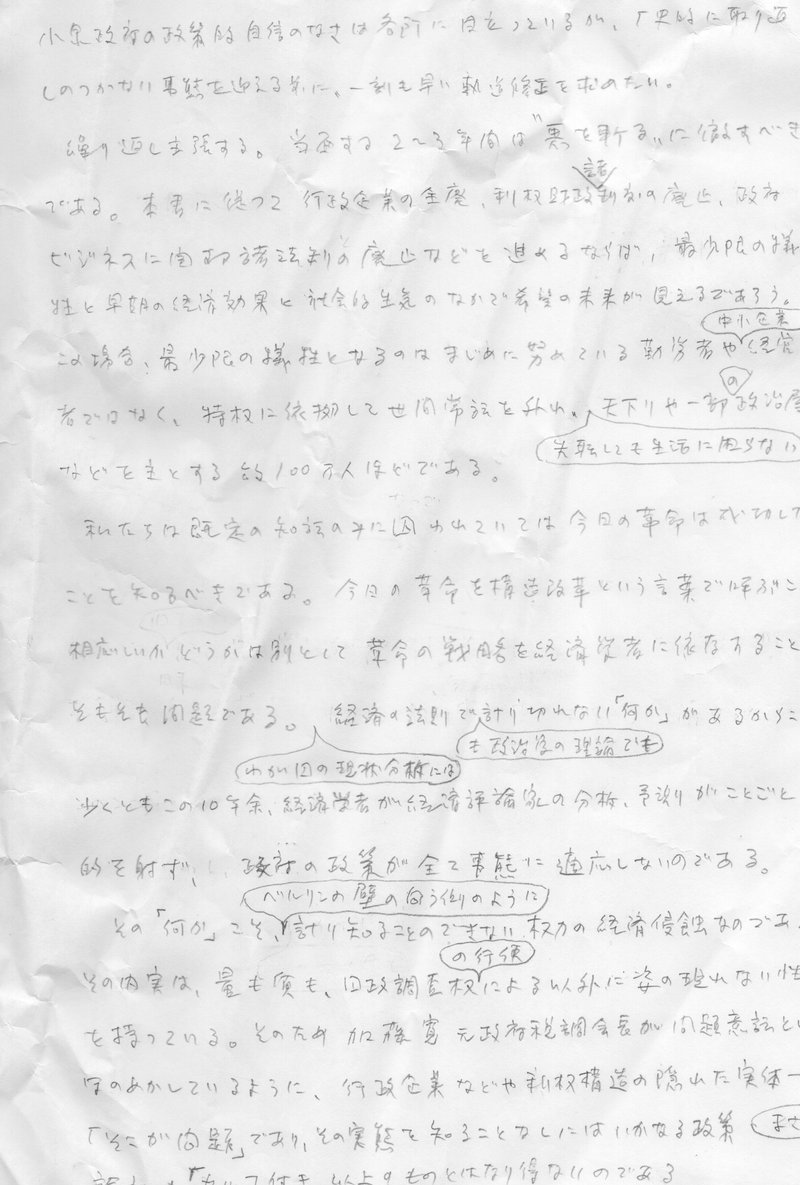 小泉政府の政策的自信のなさは各所に目立っているが、「史的に取り返
しのつかない事態を迎える前に、一刻も早い軌道修正を求めたい。
繰り返し主張する。当面する2〜3年間は"悪を斬る"に徹すべき
である。本書に従って行政企業の全廃、利権財政諸制度の廃止、政府
ビジネスに関わる諸法制の廃止などを進めるならば、最少限の犠
牲と早期の経済効果と社会的生気のなかで希望の未来が見えるであろう。
この場合、最少限の犠牲となるのはまじめに努めている勤労者や中小企業経営
者ではなく、特権に依拠して世間常識を外れ、失転しても生活に困らない天下りや一部の政治屋
などを主とする約100万人ほどである。
私たちは既定の知識のみに囚われていては今日の革命は成功し
ことを知るべきである。今日の革命を構造改革という言葉で呼ぶこ
相応しいかどうかは別として革命の戦略を経済学者に依存すること
そもそも問題である。わが国の現状分析には経済の法則でも政治家の理論でも計り切れない「何か」があるからこ
少くともこの10年余、経済学者が経済評論家の分析、予測がことごと
的を射ず、政府の政策が全て事態に適応しないのである。
その「何か」こそ、ベルリンの壁の向う側のように計り知ることのできない権力の経済侵蝕なのであ
その内実は、量も質も、国政調査権の行使による以外に姿の現れない性
を持っている。そのため加藤寛元政府税調会長が問題意識とし
ほのめかしているように、行政企業などや利権構造の隠れた実体
「そこが問題」であり、その実態を知ることなしにはいかなる政策、まさ
「カッコ付き」以上のものとはなり得ないのである